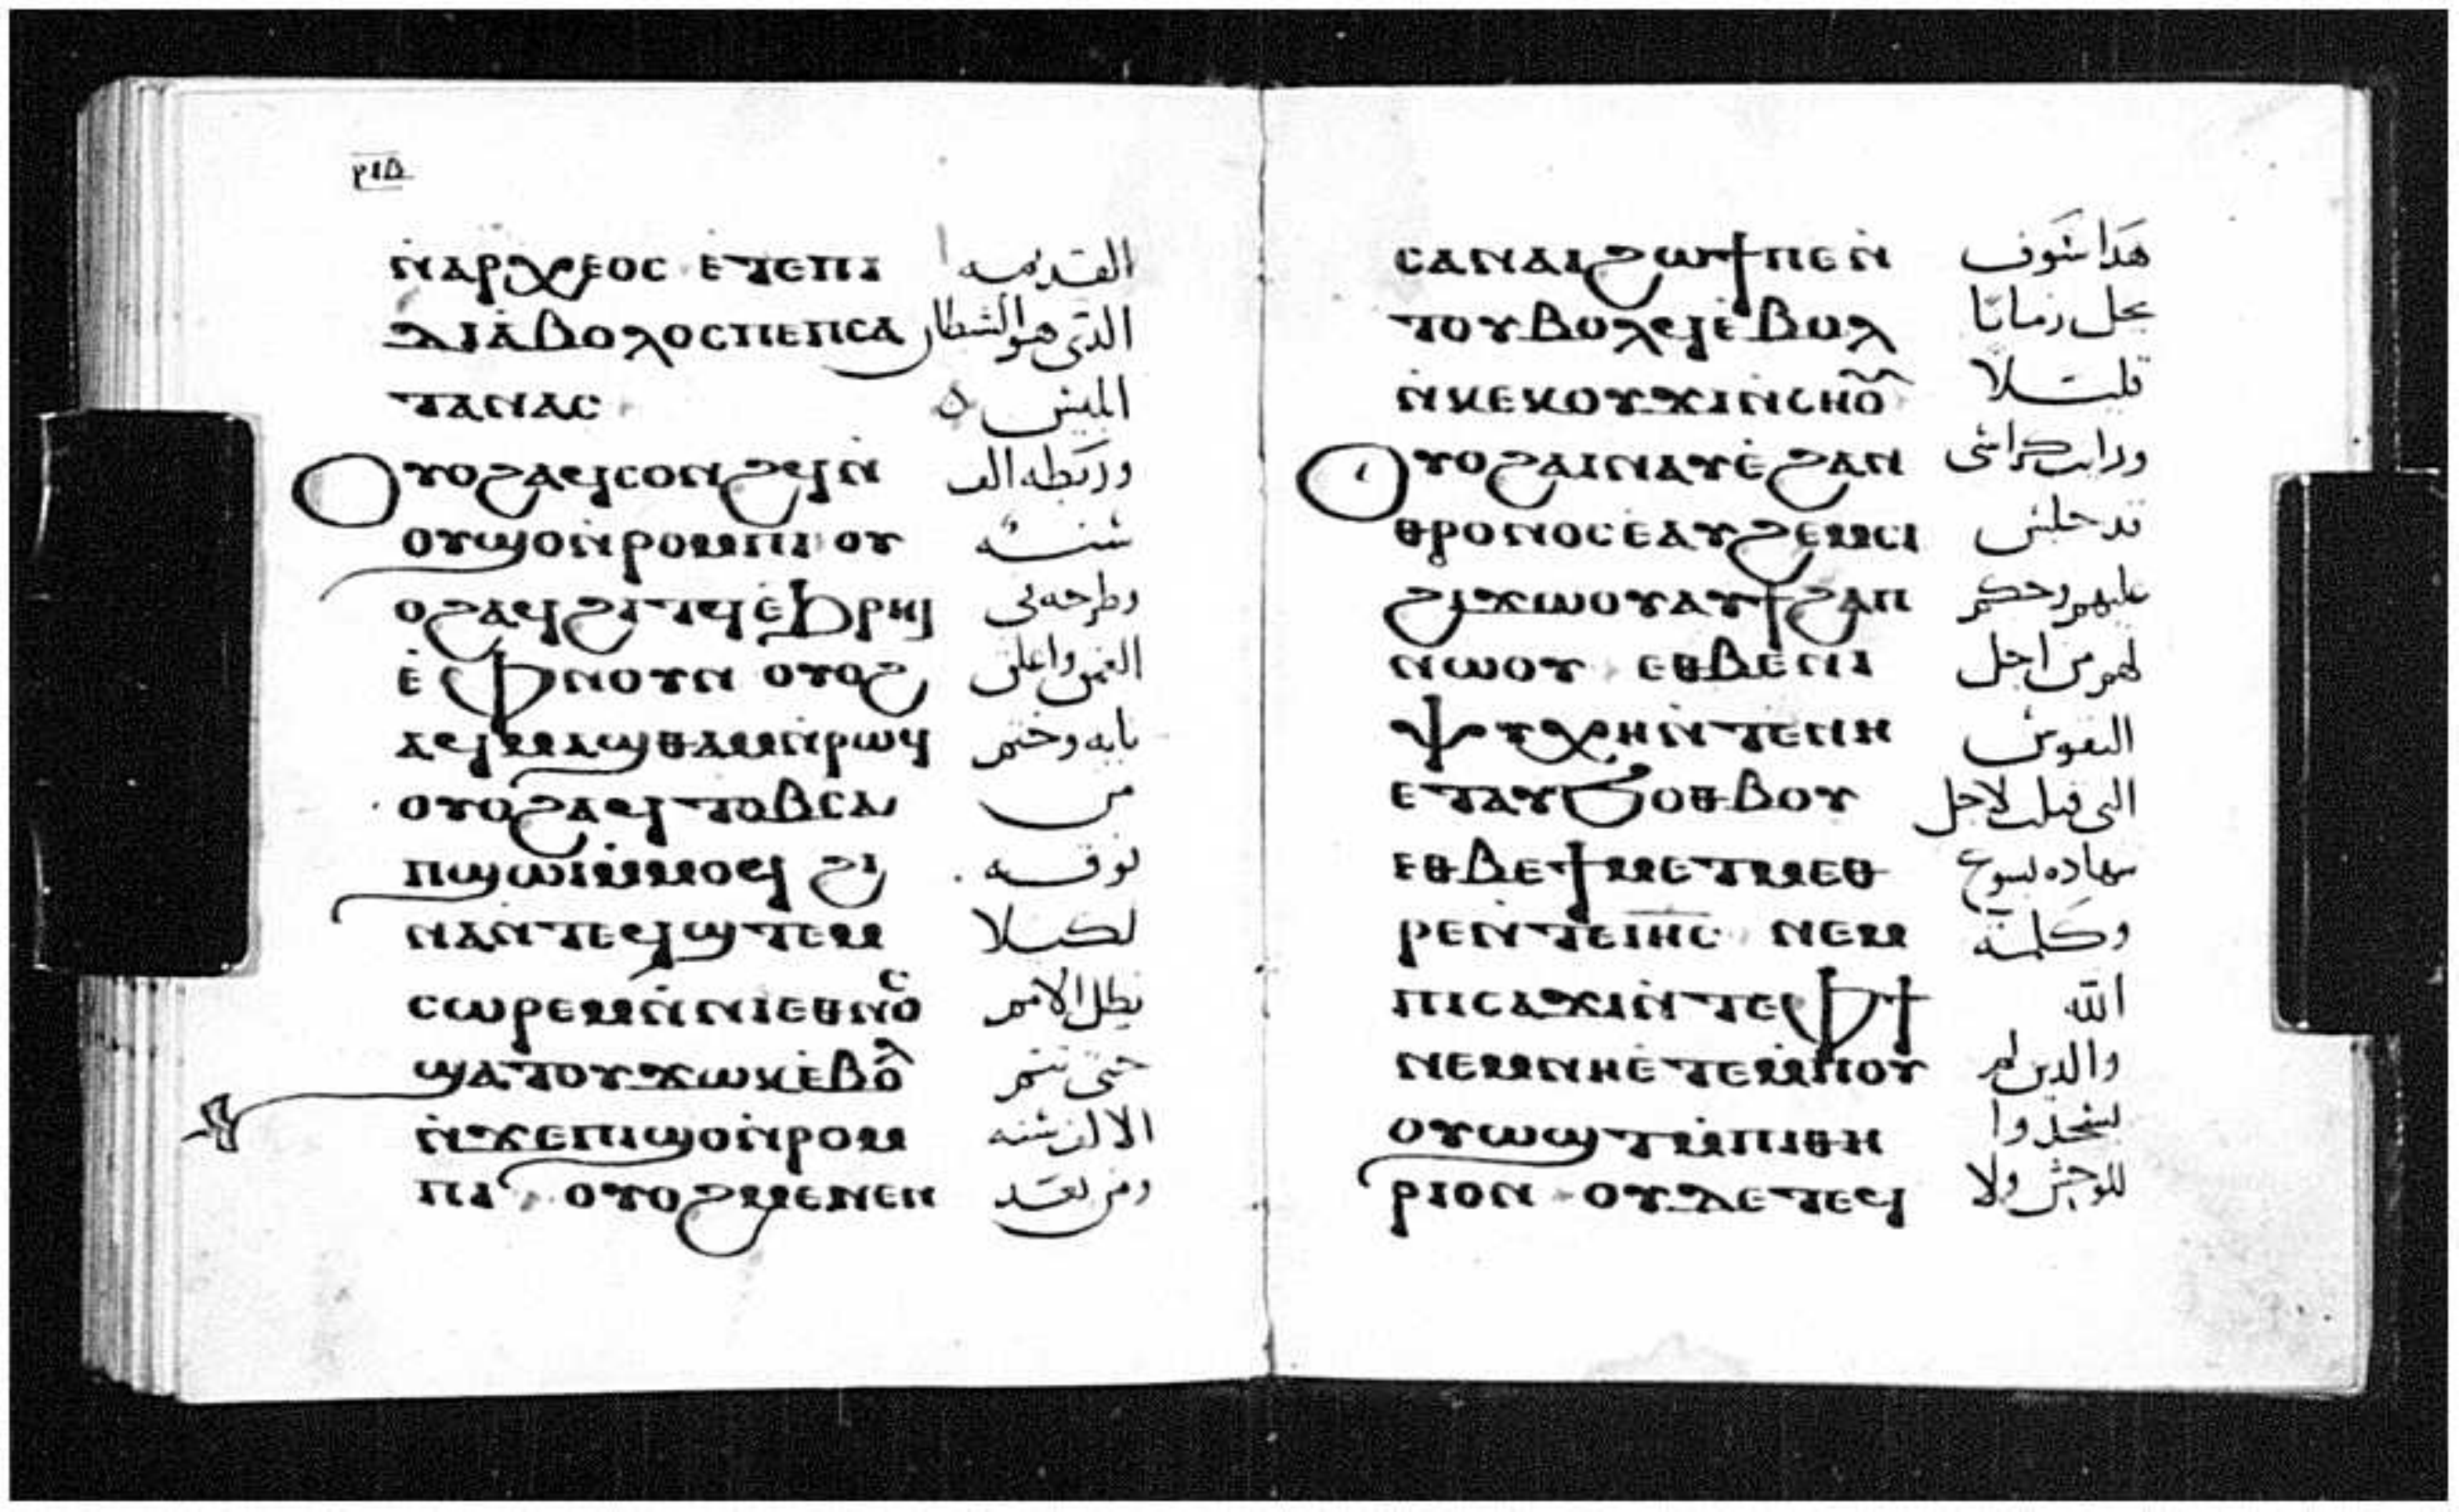 ⲣⲓⲇ
ⲛ̇ⲁⲣⲭⲉⲟⲥ ⲉⲧⲉⲡⲓ القديمه
ⲇⲓⲁⲃⲟⲗⲟⲥⲡⲉⲡⲥⲁ الذى هو الشطان
ⲧⲁⲛⲁⲥ
ⲟⲩⲟϩⲁϥⲥⲟⲛϩϥⲛ̇ وربطه الف
ⲟⲩϣⲟⲛ̇ⲣⲟⲙⲡⲓ ⲟⲩ سنه
ⲟϩⲁϥϩⲓⲧϥⲉ̇ϧⲣⲏⲓ وطرحه فى
ⲉ̇ⲫⲛⲟⲩⲛ ⲟⲩⲟϩ العمق واغلق
ⲁϥⲙⲁϣⲑⲁⲙⲛ̇ⲣⲱϥ بابه وختم
ⲟⲩⲟϩⲁϥⲧⲟⲃⲥⲁ من
ⲡϣⲱⲓⲙ̇ⲙⲟϥ ϩⲓ فوقه
ⲛⲁⲛ̇ⲧⲉϥϣⲧⲉⲙ لكيلا
ⲥⲱⲣⲉⲙⲛ̇ⲛⲓⲉⲑⲛⲟⲥ يظل الامم
ϣⲁⲧⲟⲩϫⲱⲕⲉ̇ⲃⲟⲗ حتى تتم
ⲛ̇ϫⲉⲡⲓϣⲟⲛ̇ⲣⲟⲙ الالف سنه
ⲡⲓ ⲟⲩⲟϩⲙⲉⲛⲉⲛ ومن بعد
ⲥⲁⲛⲁⲓϩⲱϯⲡⲉⲛ̇ هذا سوف
ⲧⲟⲩⲃⲟⲗϥⲉ̇ⲃⲟⲗ يحل زمانا
ⲛ̇ⲕⲉⲕⲟⲩϫⲓⲛ̇ⲥⲏⲟ̃ قليلا
ⲟⲩⲟϩⲁⲓⲛⲁⲩⲉ̇ϩⲁⲛ ورايت كراسى
ⲑⲣⲟⲛⲟⲥⲉ̇ⲁⲩϩⲉⲙⲥⲓ قد جلس
ϩⲓϫⲱⲟⲩⲁⲩϯϩⲁⲡ عليهم وحكم
ⲛⲱⲟⲩ ⲉⲑⲃⲉⲛⲓ لهم من اجل
ⲯⲩⲭⲏⲛ̇ⲧⲉⲛⲏ النفوس
ⲉⲧⲁⲩϧⲟⲑⲃⲟⲩ التى قتلت لاجل
ⲉⲑⲃⲉϯⲙⲉⲧⲙⲉⲑ شهاده يسوع
ⲣⲉⲛ̇ⲧⲉⲓⲏⲥ ⲛⲉⲙ وكلمة
ⲡⲓⲥⲁϫⲓⲛ̇ⲧⲉⲫϯ الله
ⲛⲉⲙⲛⲏⲉ̇ⲧⲉⲙⲡⲟⲩ والذين لم
ⲟⲩⲱϣⲧⲙ̇ⲡⲓⲑⲏ يسجدوا
ⲣⲓⲟⲛ ⲟⲩⲇⲉⲧⲉϥ للوحش ولا